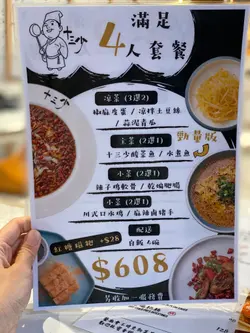 十三少
滿足
4人套餐
涼菜 (3選2)
椒麻皮蛋 / 涼拌土豆絲
蒜泥青瓜
勁量版
主菜 (2選1)
十三少酸菜魚 / 水煮魚
小菜 (2選1)
辣子雞軟骨 / 乾煸肥腸
小菜 (2選1)
川式口水雞 / 麻辣鹵豬手
配送
白飯4碗
紅糖糍粑 +$28
$608
另收加一服務費